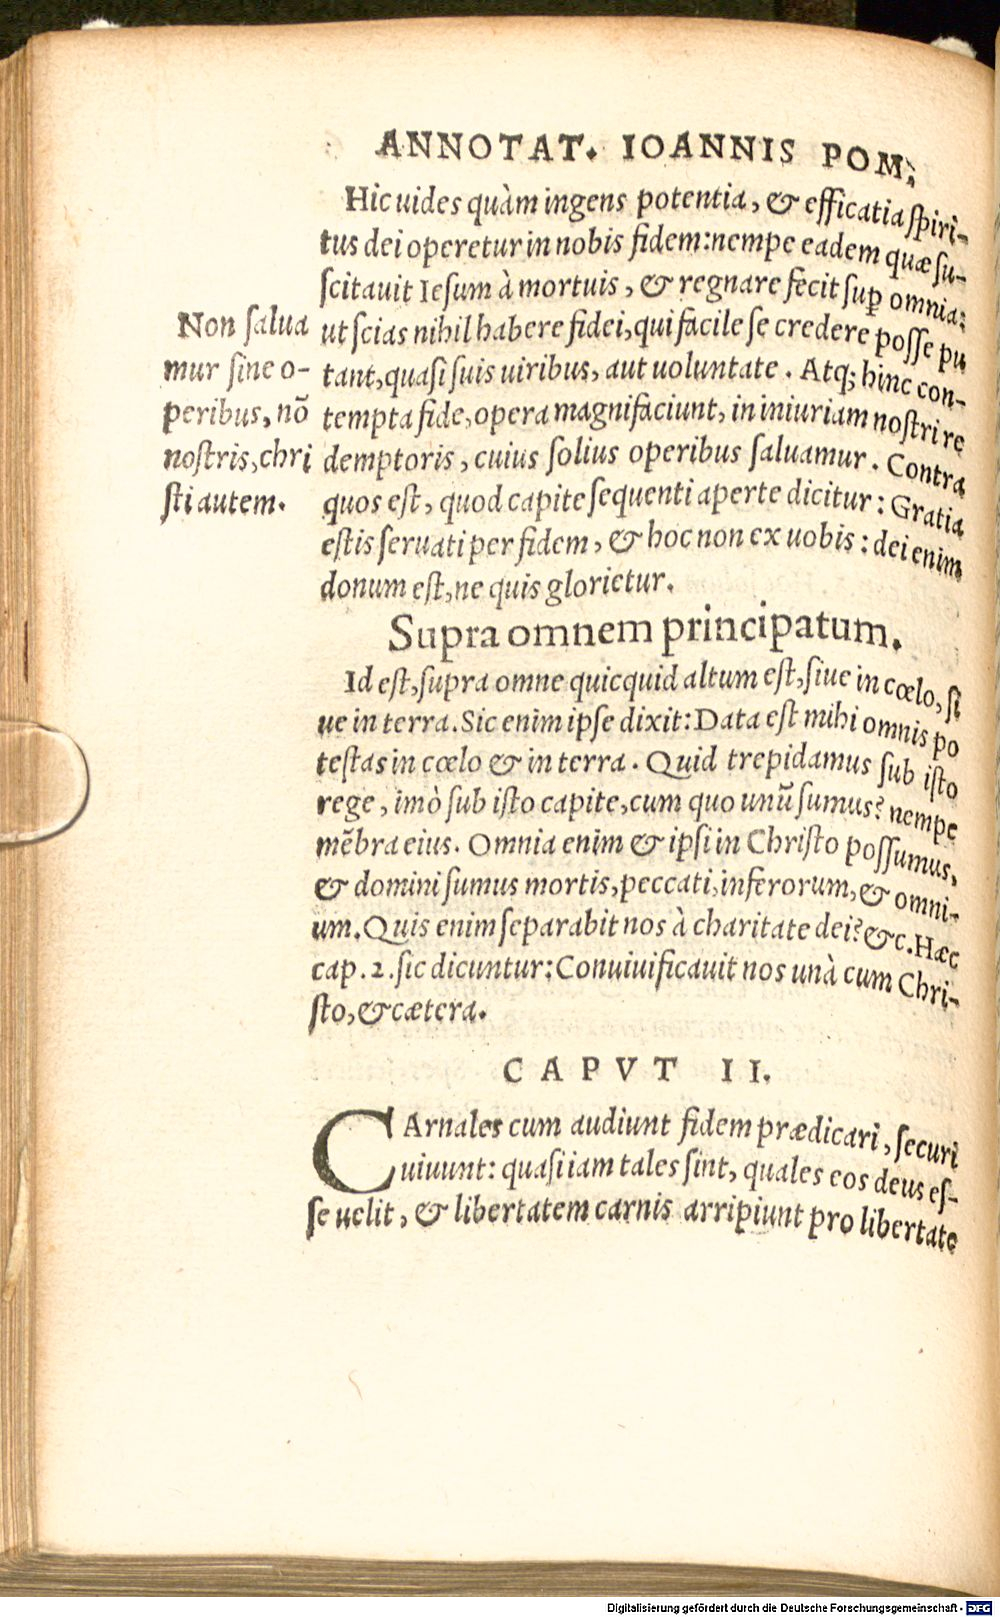 ANNOTAT. IOANNIS POM.
Hic uides quàm ingens potentia, & efficatia ſpiri-
tus dei operetur in nobis fidem: nempe eadem quæ ſu-
ſcitauit Ieſum à mortuis, & regnare fecit ſuꝑ omnia:
ut ſcias nihil habere fidei, qui facile ſe credere poſſe pu
tant, quaſi ſuis uiribus, aut uoluntate. Atq; hinc con-
tempta fide, opera magnifaciunt, in iniuriam noſtri re
demptoris, cuius ſolius operibus ſaluamur. Contra
quos eſt, quod capite ſequenti aperte dicitur: Gratia
eſtis ſeruati per fidem, & hoc non ex uobis: dei enim
donum eſt, ne quis glorietur.
Non ſalua
mur ſine o-
peribus, nō
noſtris, chri
ſti autem.
Supra omnem principatum.
Id eſt, ſupra omne quicquid altum eſt, ſiue in cœlo, ſi
ue in terra. Sic enim ipſe dixit: Data eſt mihi omnis po
teſtas in cœlo & in terra. Quid trepidamus ſub iſto
rege, imò ſub iſto capite, cum quo unū ſumus? nempe
mēbra eius. Omnia enim & ipſi in Chriſto poſſumus,
& domini ſumus mortis, peccati, inferorum, & omni-
um. Quis enim ſeparabit nos à charitate dei? &c. Hæc
cap. 2. ſic dicuntur: Conuiuificauit nos unà cum Chri-
ſto, & cætera.
CAPVT II.
CArnales cum audiunt fidem prædicari, ſecuri
uiuunt: quaſi iam tales ſint, quales eos deus eſ-
ſe uelit, & libertatem carnis arripiunt pro libertate
Digitalisierung gefördert durch die Deutsche Forschungsgemeinschaft - DFG